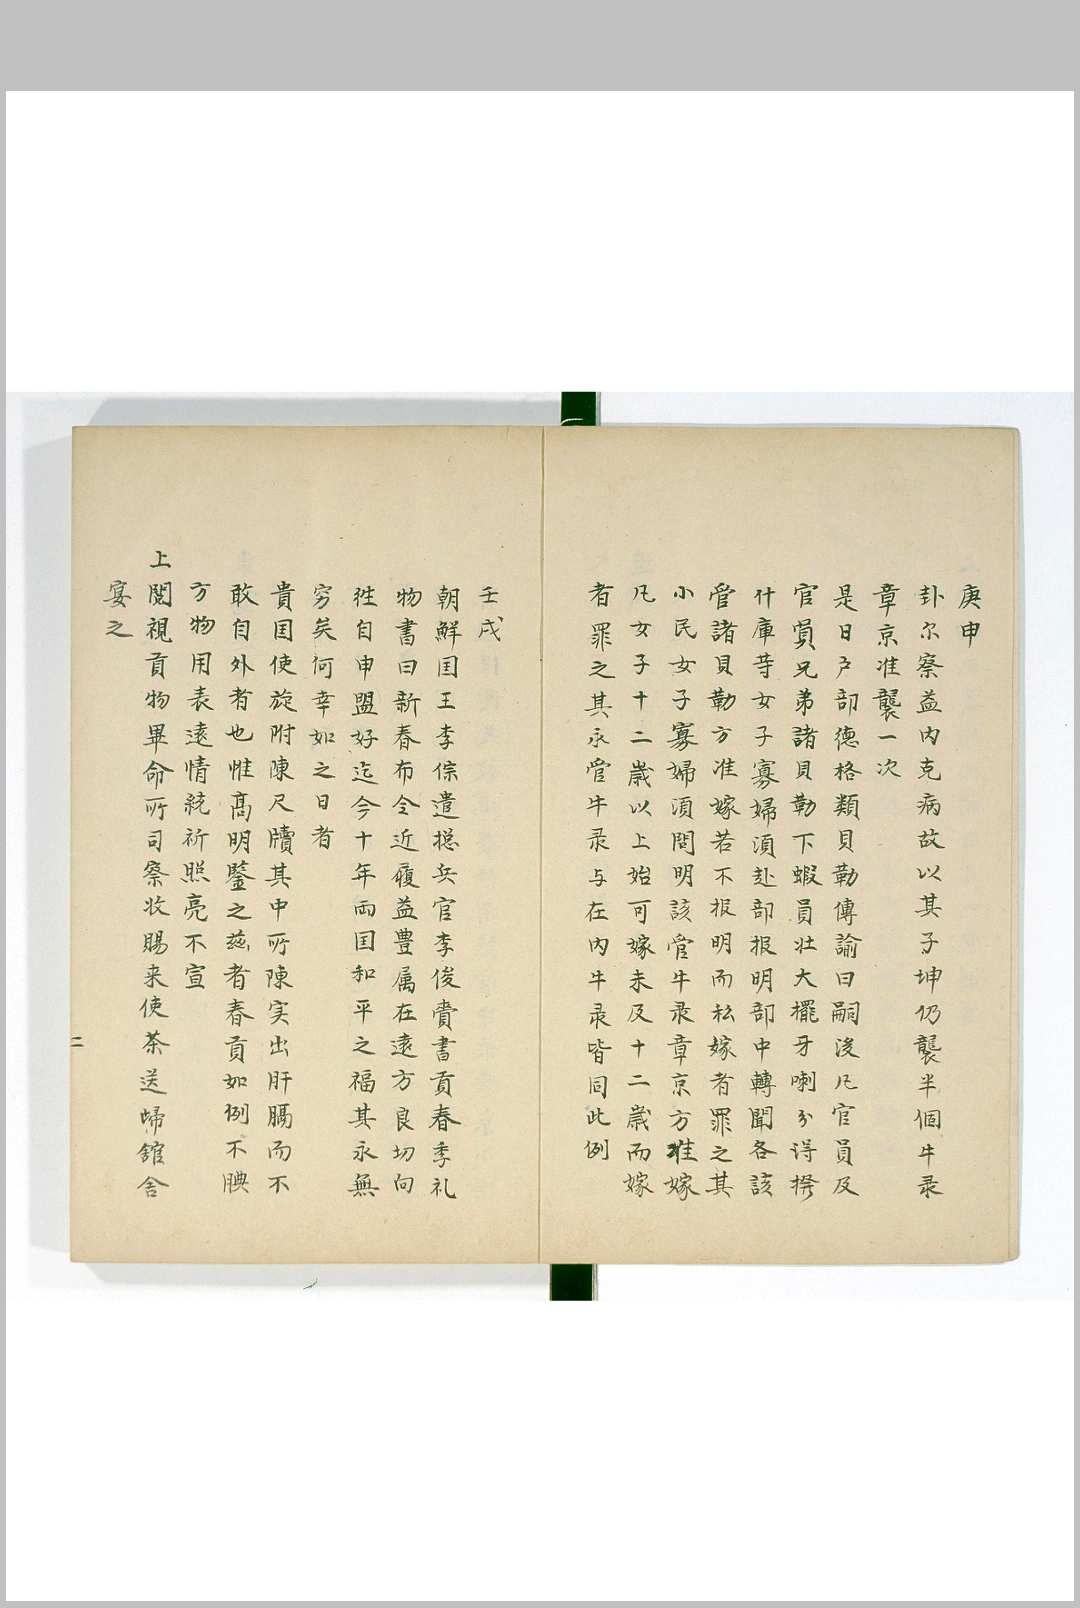 庚申
卦尔察益内克病故以其子坤仍襲半個牛录
章京准襲一次
是日户部德格類貝勒傳諭曰嗣後凡官員及
官員兄弟諸貝勒下蝦員壯大擺牙喇分得撥
什庫䓁女子寡婦湏赴部报明部中轉聞各該
管諸貝勒方准嫁若不报明而私嫁者罪之其
小民女子寡婦湏問明該管牛录章京方准嫁
凡女子十二歲以上始可嫁未及十二歲而嫁
者罪之其永管牛录与在内牛录皆同此例
壬戌
朝鮮囯王李倧遣捴兵官李俊賫書貢春季礼
物書曰新春布令近履益豊属在遠方良切向
徃自申盟好迄今十年両囯和平之福其永無
穷矣何幸如之日者
貴囯使旋附陳尺牘其中所陳实出肝膈而不
敢自外者也惟髙明鑒之兹者春貢如例不腆
方物用表遠情統祈照亮不宣
上閱視貢物畢命所司察收賜来使茶送歸舘舍
宴之
二